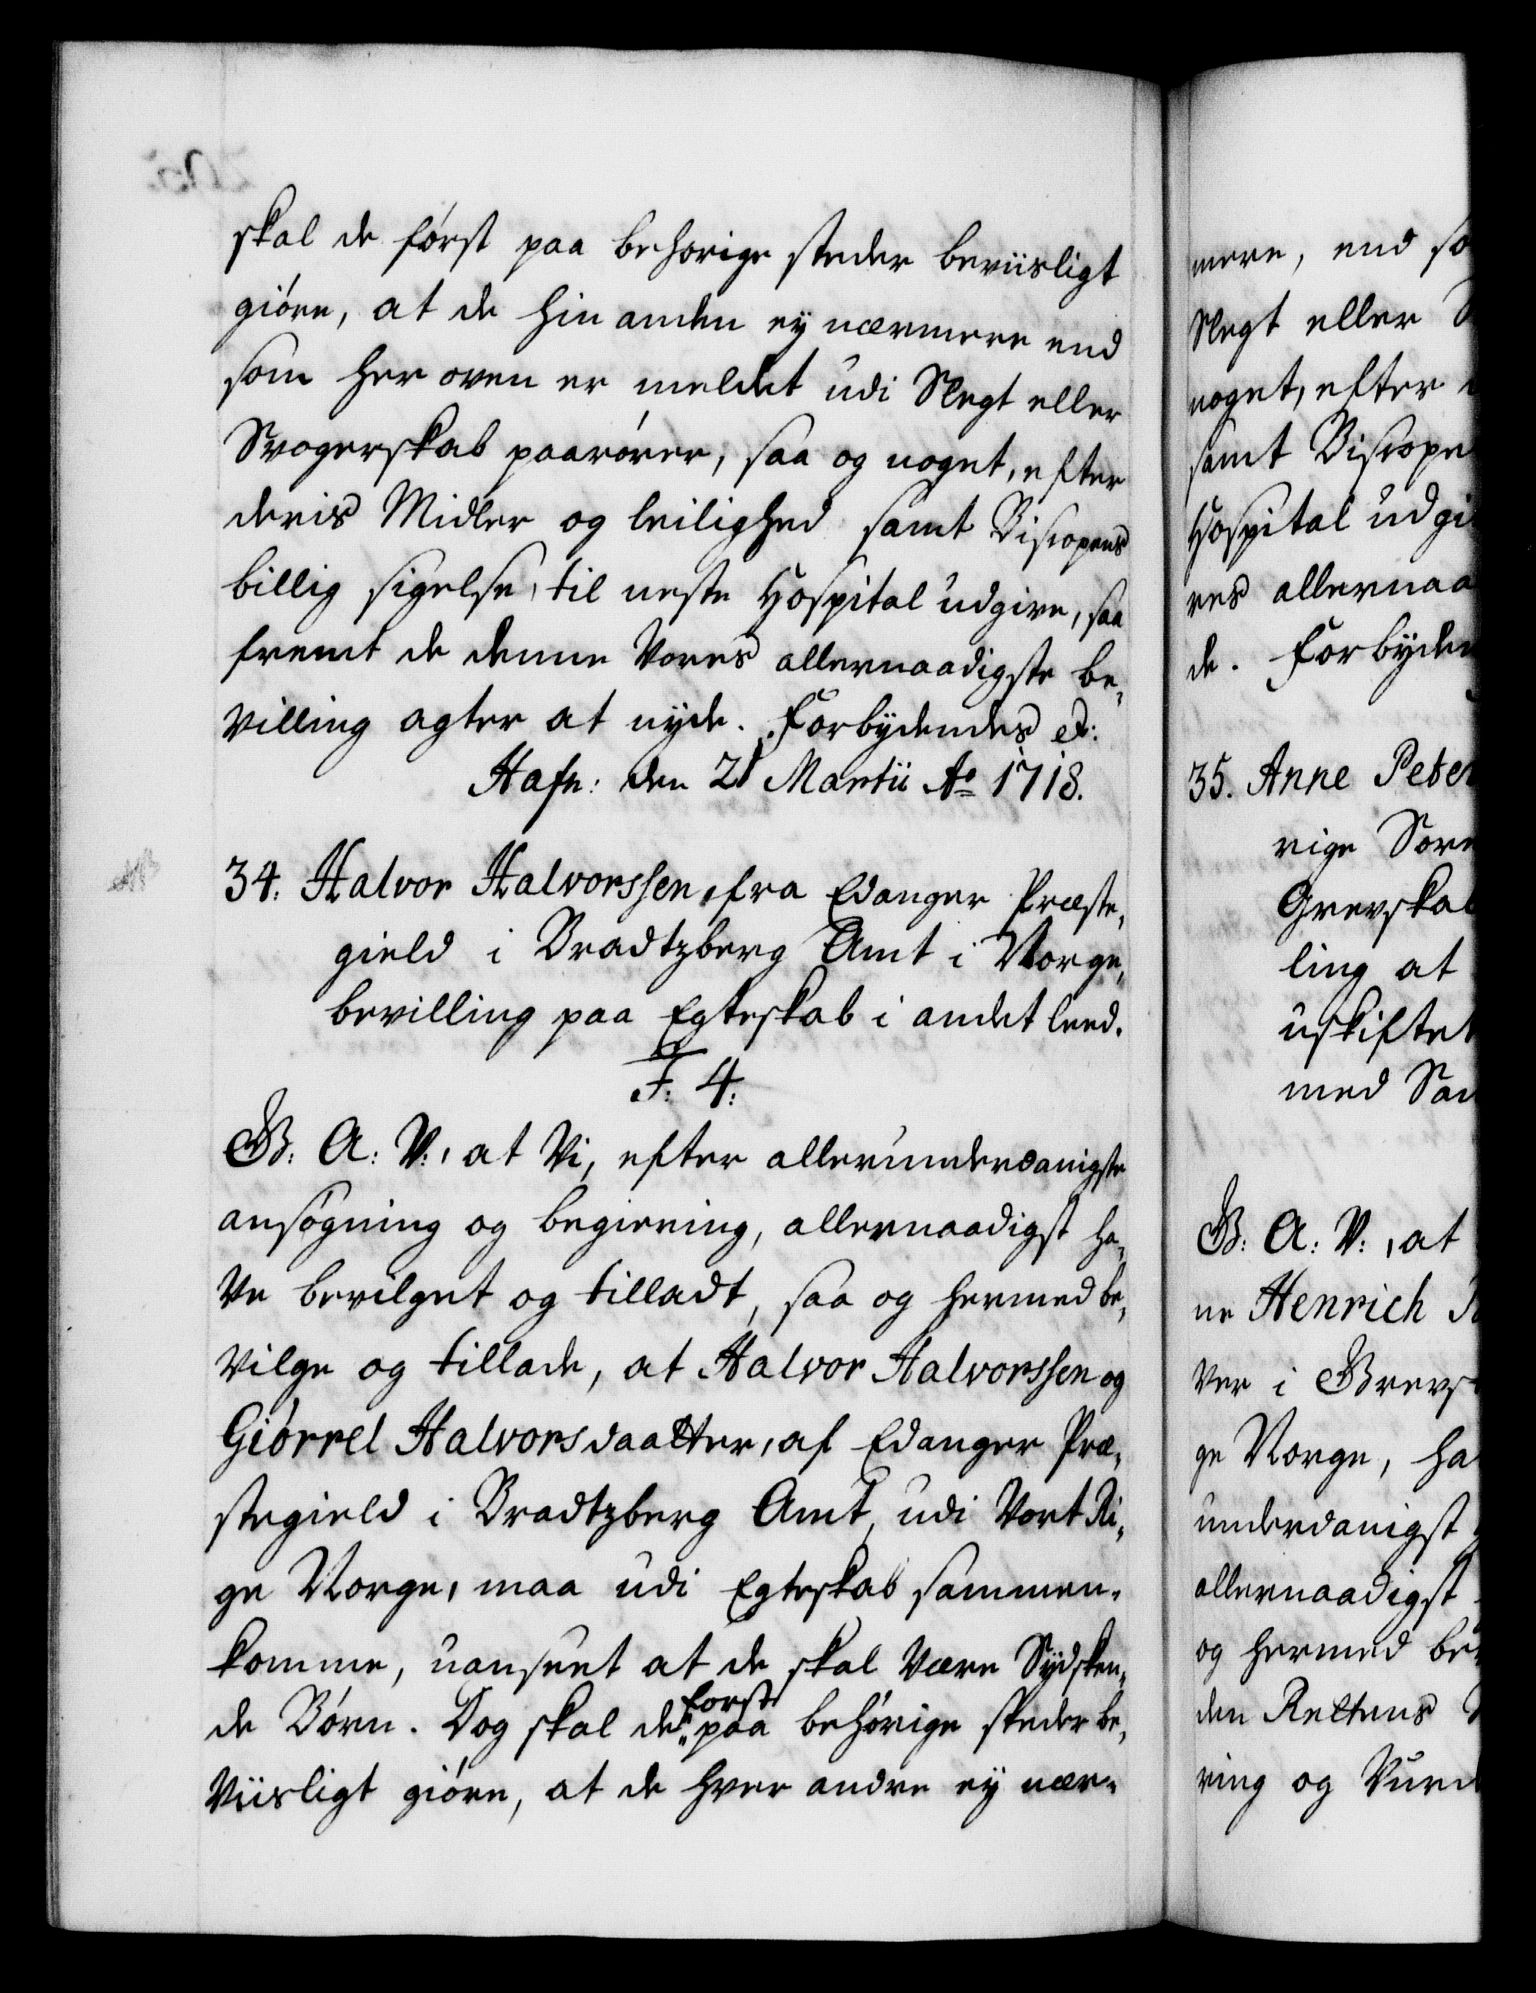 skal de först paa behörige steder beviisligt
giöre, at de hin anden ey nærmere end
som her oven er meldet udi Slegt eller
Svogerskab paarörer, saa og noget, efter
deris Midler og leilighed samt Biscopens
billig sigelse, til neste Hospital udgive, saa
fremt de denne Vores allernaadigste be-
villing agter at nyde. Forbydendes etc:
Hafn: den 21 Martii Ao 1718.
34. Halvor Halvorssen, fra Edanger Præste-
gield i Bradtzberg Amt i Norge,
bevilling paa Egteskab i andet leed.
F: 4:
G: A: V:, at Vi, efter allerunderdanigste
ansögning og begiering, allernaadigst ha-
ve bevilget og tilladt, saa og hermed be-
vilge og tillade, at Halvor Halvorssen og
Giörrel Halvorsdaatter, af Edanger Præ-
stegield i Bradtzberg Amt, udi Vort Ri-
ge Norge, maa udi Egteskab sammen-
komme, uanseet at de skal være Sydsken-
de Börn. Dog skal de först paa behörige steder be-
viisligt giöre, at de hver andre ey nær-
mere, end so
Slegt eller
noget, efter
samt Biscope
Hospital udgi
res allernaa
de. Forbyden
35. Anne Peter
rige Sore
Grevskab
ling at
uskiftet
med Sam
G: A: V:, at
ne Henrich
ver i Grevs
ge Norge, ha
underdanigst
allernaadigst
og hermed be
den Rettens
ring og Vurd